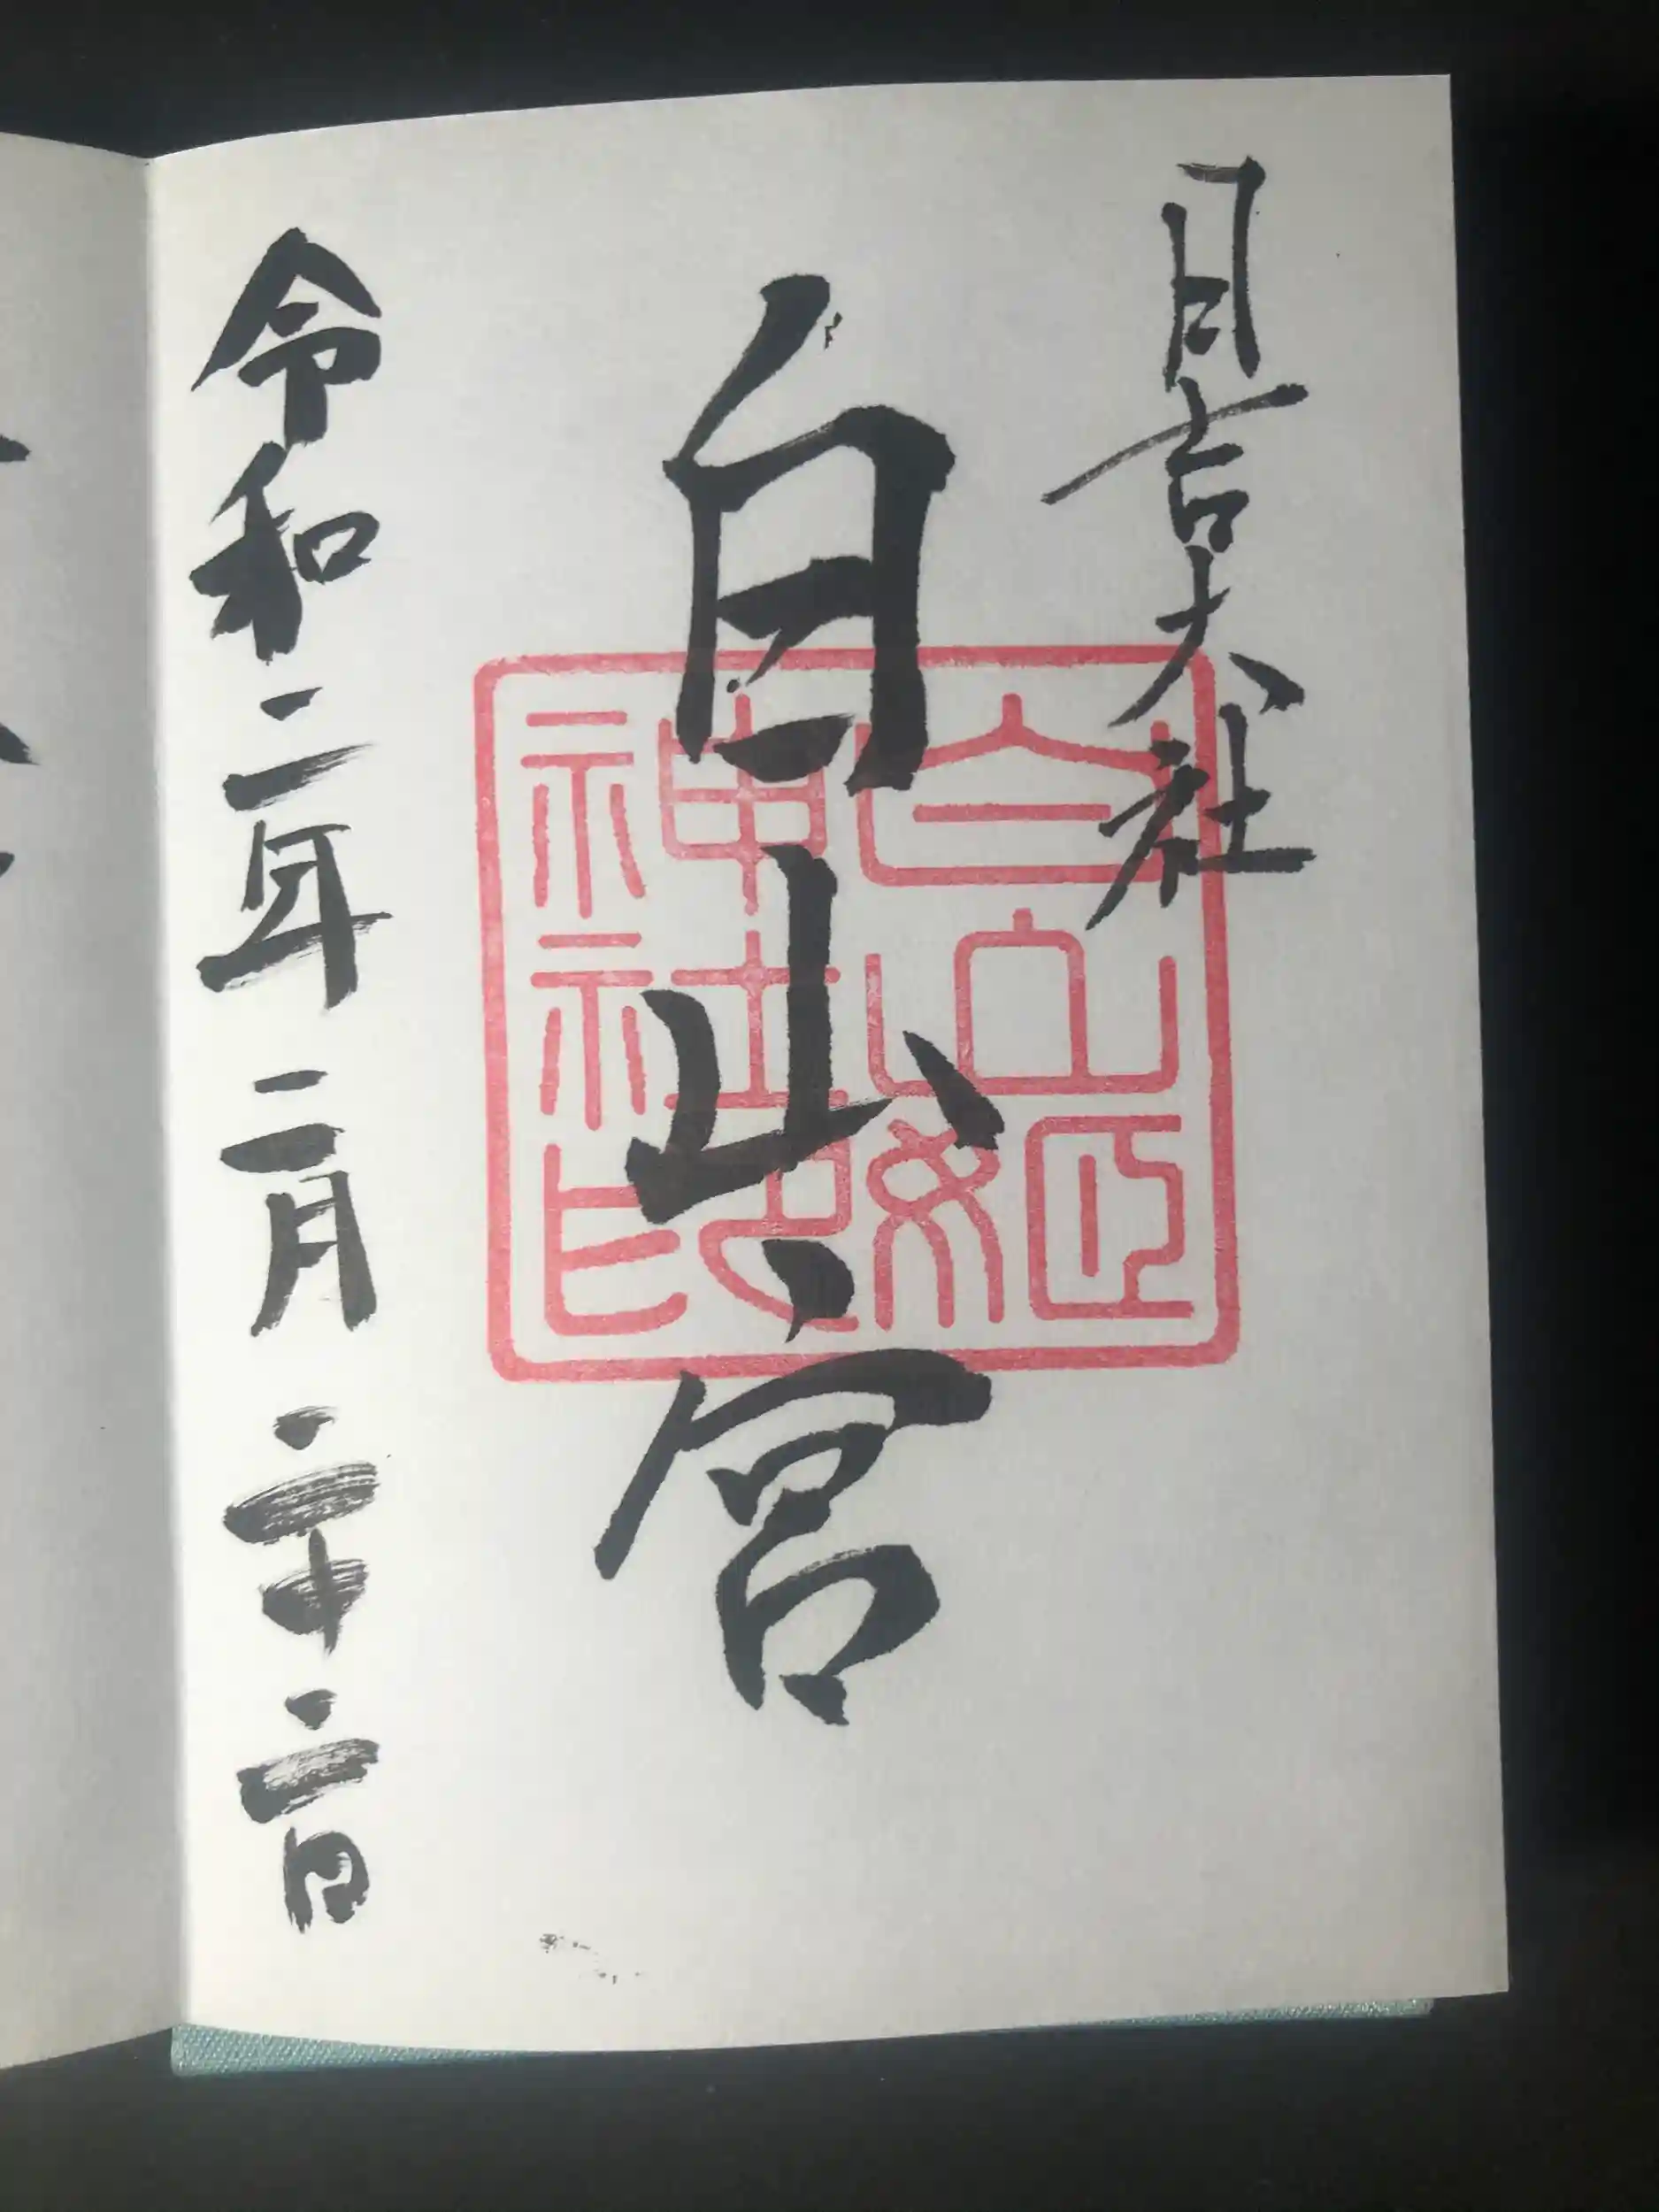 日吉大社
白山宮
令和二年二月二十二日
白山姫
神社印